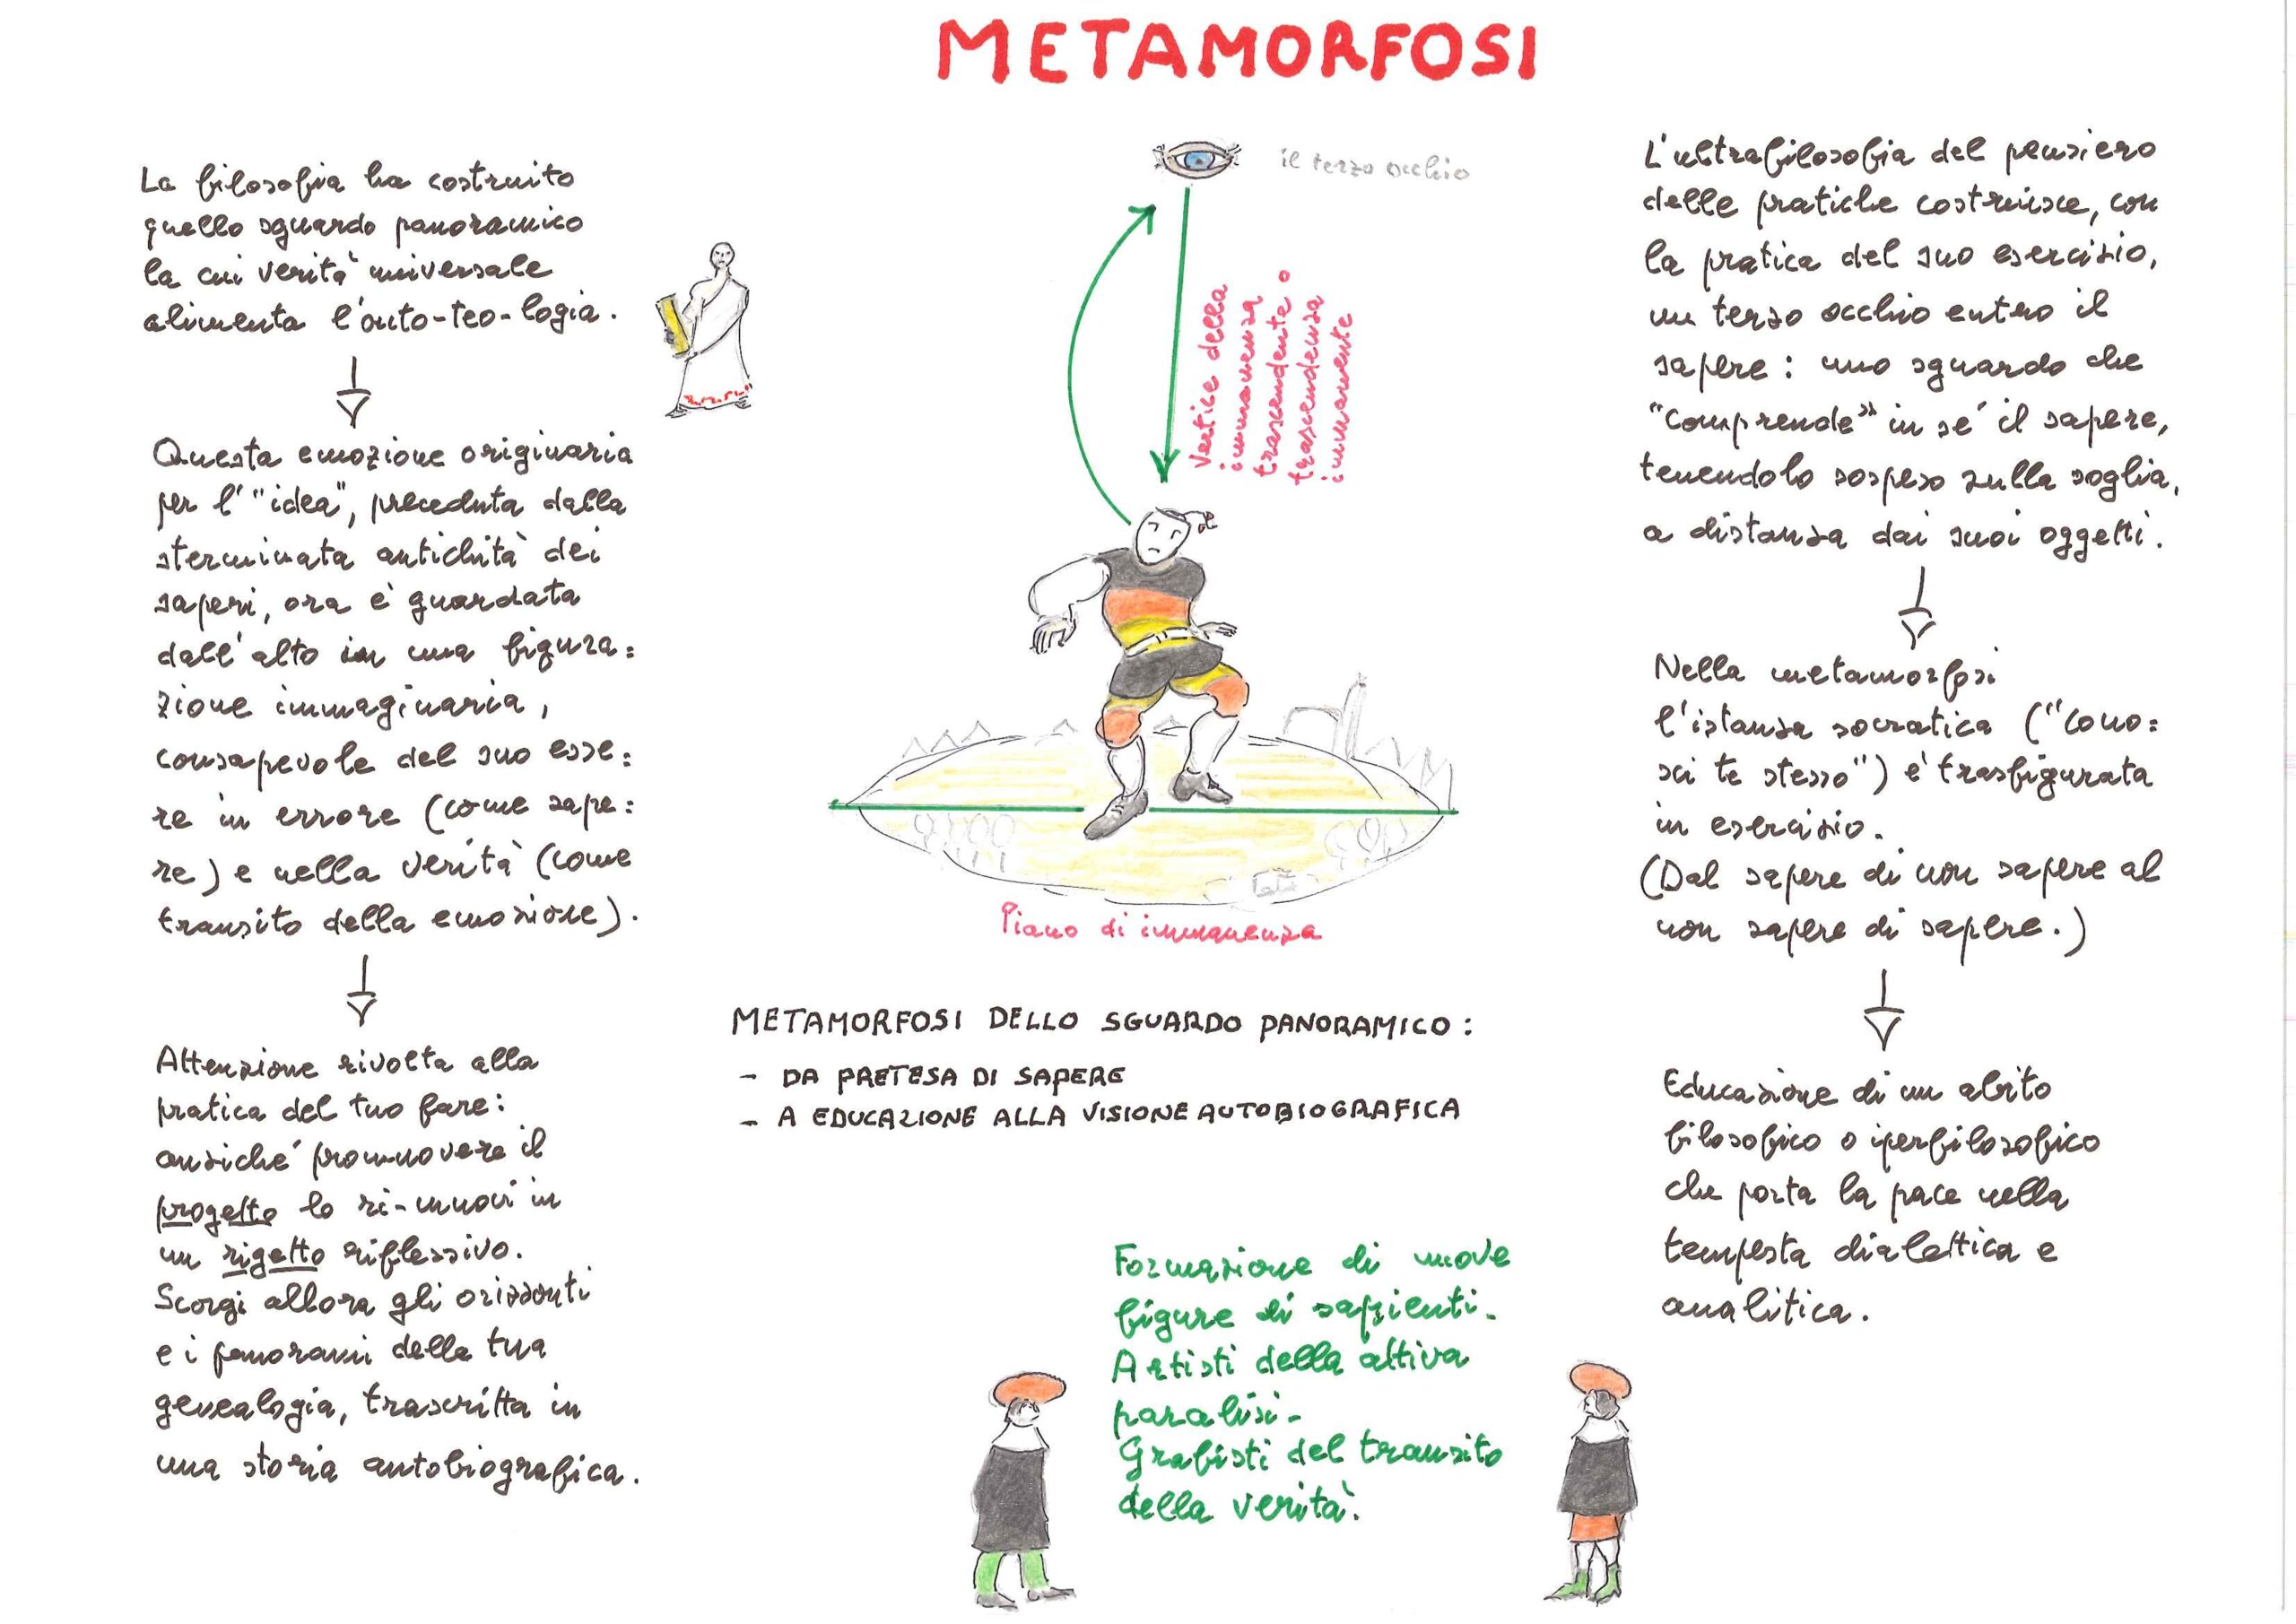 METAMORFOSI
La filosofia ha costruito
quello sguardo panoramico
la cui verità universale
alimenta l'onto-teo-logia.
Questa emozione originaria
per l'"idea", preceduta dalla
sterminata antichità dei
saperi, ora è guardata
dall'alto in una figura=
zione immaginaria,
consapevole del suo esse=
re in errore (come sape=
re) e nella verità (come
transito della emozione).
Attenzione rivolta alla
pratica del tuo fare:
anziché promuovere il
progetto lo ri-muovi in
un rigetto riflessivo.
Scorgi allora gli orizzonti
e i panorami della tua
genealogia, trascritta in
una storia autobiografica.
il terzo occhio
Vertice della
immanenza
trascendente o
trascendenza
immanente
Piano di immanenza
METAMORFOSI DELLO SGUARDO PANORAMICO:
- DA PRETESA DI SAPERE
- A EDUCAZIONE ALLA VISIONE AUTOBIOGRAFICA
Formazione di nuove
figure di sapienti.
Artisti della attiva
paralisi.
Grafisti del transito
della verità.
L'ultrafilosofia del pensiero
delle pratiche costruisce, con
la pratica del suo esercizio,
un terzo occhio entro il
sapere: uno sguardo che
"comprende" in sé il sapere,
tenendolo sospeso sulla soglia,
a distanza dai suoi oggetti.
Nella metamorfosi
l'istanza socratica ("cono=
sci te stesso") è trasfigurata
in esercizio.
(Dal sapere di non sapere al
non sapere di sapere.)
Educazione di un abito
filosofico o iperfilosofico
che porta la pace nella
tempesta dialettica e
analitica.